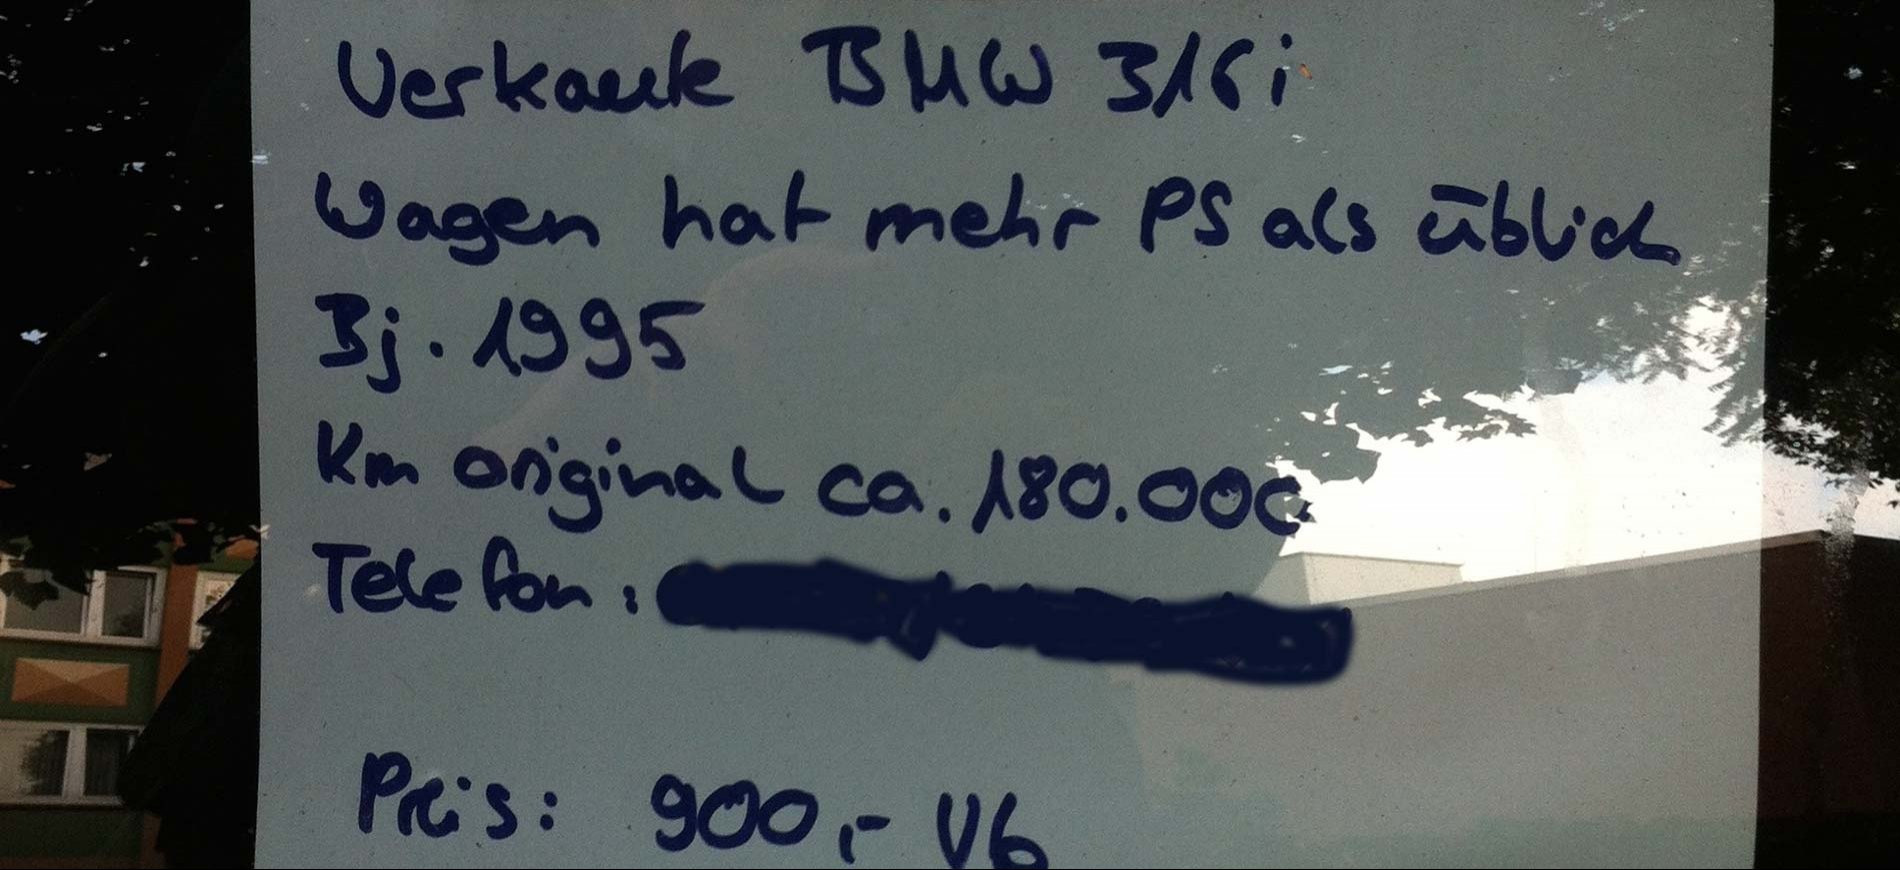 Verkaufe BMW 316i
Wagen hat mehr PS als üblich
Bj. 1995
Km original ca. 180.000
Telefon:
Preis: 900,- Vb